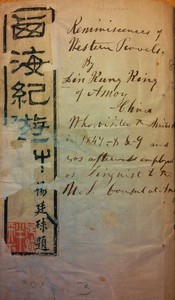 西海紀遊艸
楊廷球題
Reminiscences of
Western Travels.
By
Lin King King
of Amoy
China
Who visited the United
in 1847-8 & 9 and
was afterwards employed
as Linguist to the
U.S. Consul at Am